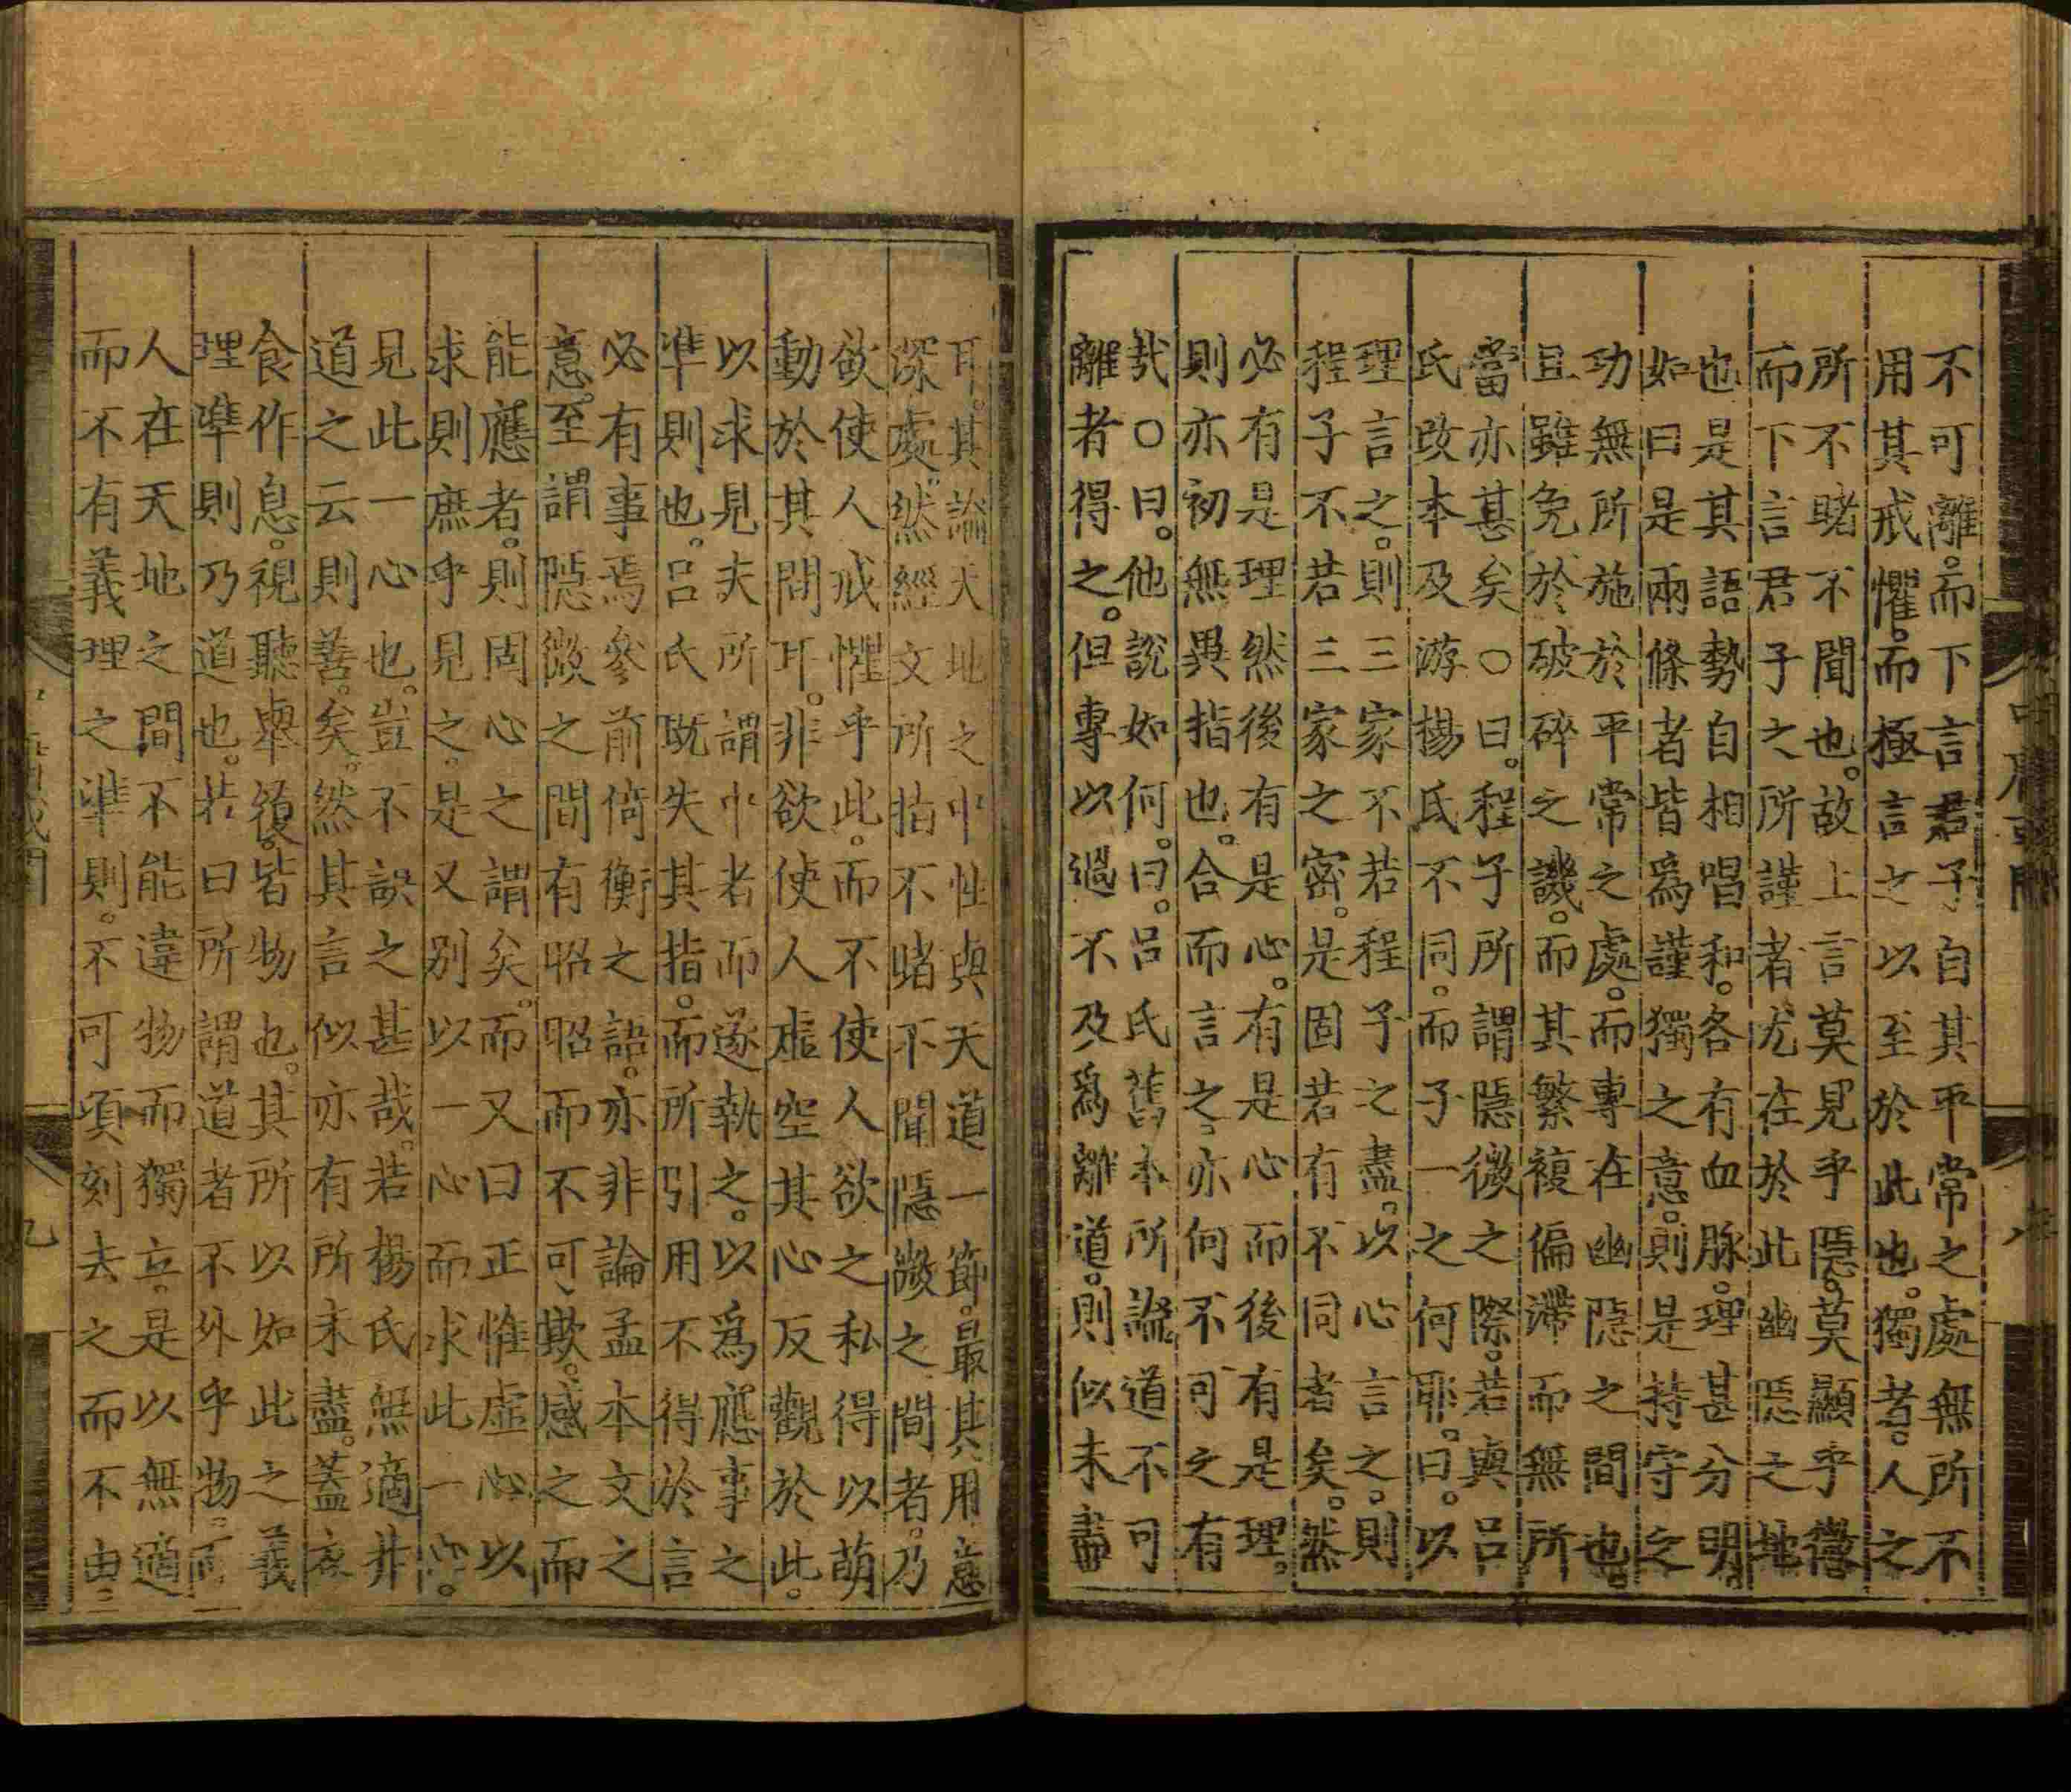 不可離。而下言君子自其平常之處無所不
用其戒懼。而極言之以至於此也。獨者。人之
所不睹不聞也。故上言莫見乎隱。莫顯乎微。
而下言君子之所謹者尤在於此幽隱之地
也是其語勢自相唱和。各有血脉。理甚分明。
如曰是兩條者皆爲謹獨之意。則是持守之
功無所施於平常之處。而專在幽隱之間也。
且雖免於破碎之譏。而其繁複偏滯而無所
當亦甚矣。〇曰。程子所謂隱微之際。若與呂
氏改本及游楊氏不同。而子一之何耶。曰。以
理言之。則三家不若程子之盡。以心言之。則
程子不若三家之密。是固若有不同者矣。然
必有是理然後有是心。有是心而後有是理。
則亦初無異指也。合而言之。亦何不可之有
哉〇曰。他說如何。曰。呂氏舊本所論道不可
離者得之。但專以過不及爲離道。則似未盡
耳。其論天地之中性與天道一節。最其用意
深處。然經文所指不睹不聞隱微之間者。乃
欲使人戒懼乎此。而不使人欲之私得以萌
動於其間耳。非欲使人虛空其心反觀於此。
以求見夫所謂中者而遂執之。以爲應事之
準則也。呂氏旣失其指。而所引用不得於言
必有事焉參前倚衡之語。亦非論孟本文之
意。至謂隱微之間有昭昭而不可欺。感之而
能應者。則固心之謂矣。而又曰正惟虛心以
求則庶乎見之。是又別以一心而求此一心。
見此一心也。豈不誤之甚哉。若楊氏無適非
道之云則善。矣。然其言似亦有所未盡。蓋衣
食作息。視聽舉履。皆物也。其所以如此之義
理準則乃道也。若曰所謂道者不外乎物。而
人在天地之間不能違物而獨立。是以無適
而不有義理之準則。不可頃刻去之而不由